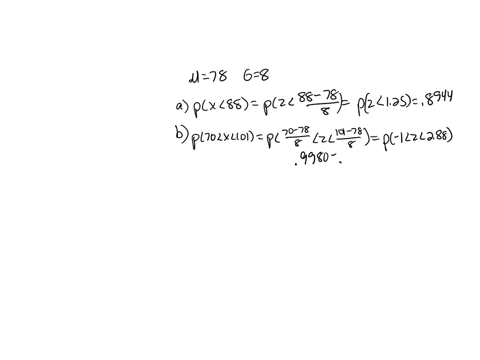 μ=78 σ=8
a) p(x<88)= p(z<88-78/8)= p(z<1.25)=.8944
b) p(70<x<101)= p<70-78/8<z<101-78/8)= p(-1<z<2.88)
.9980-.